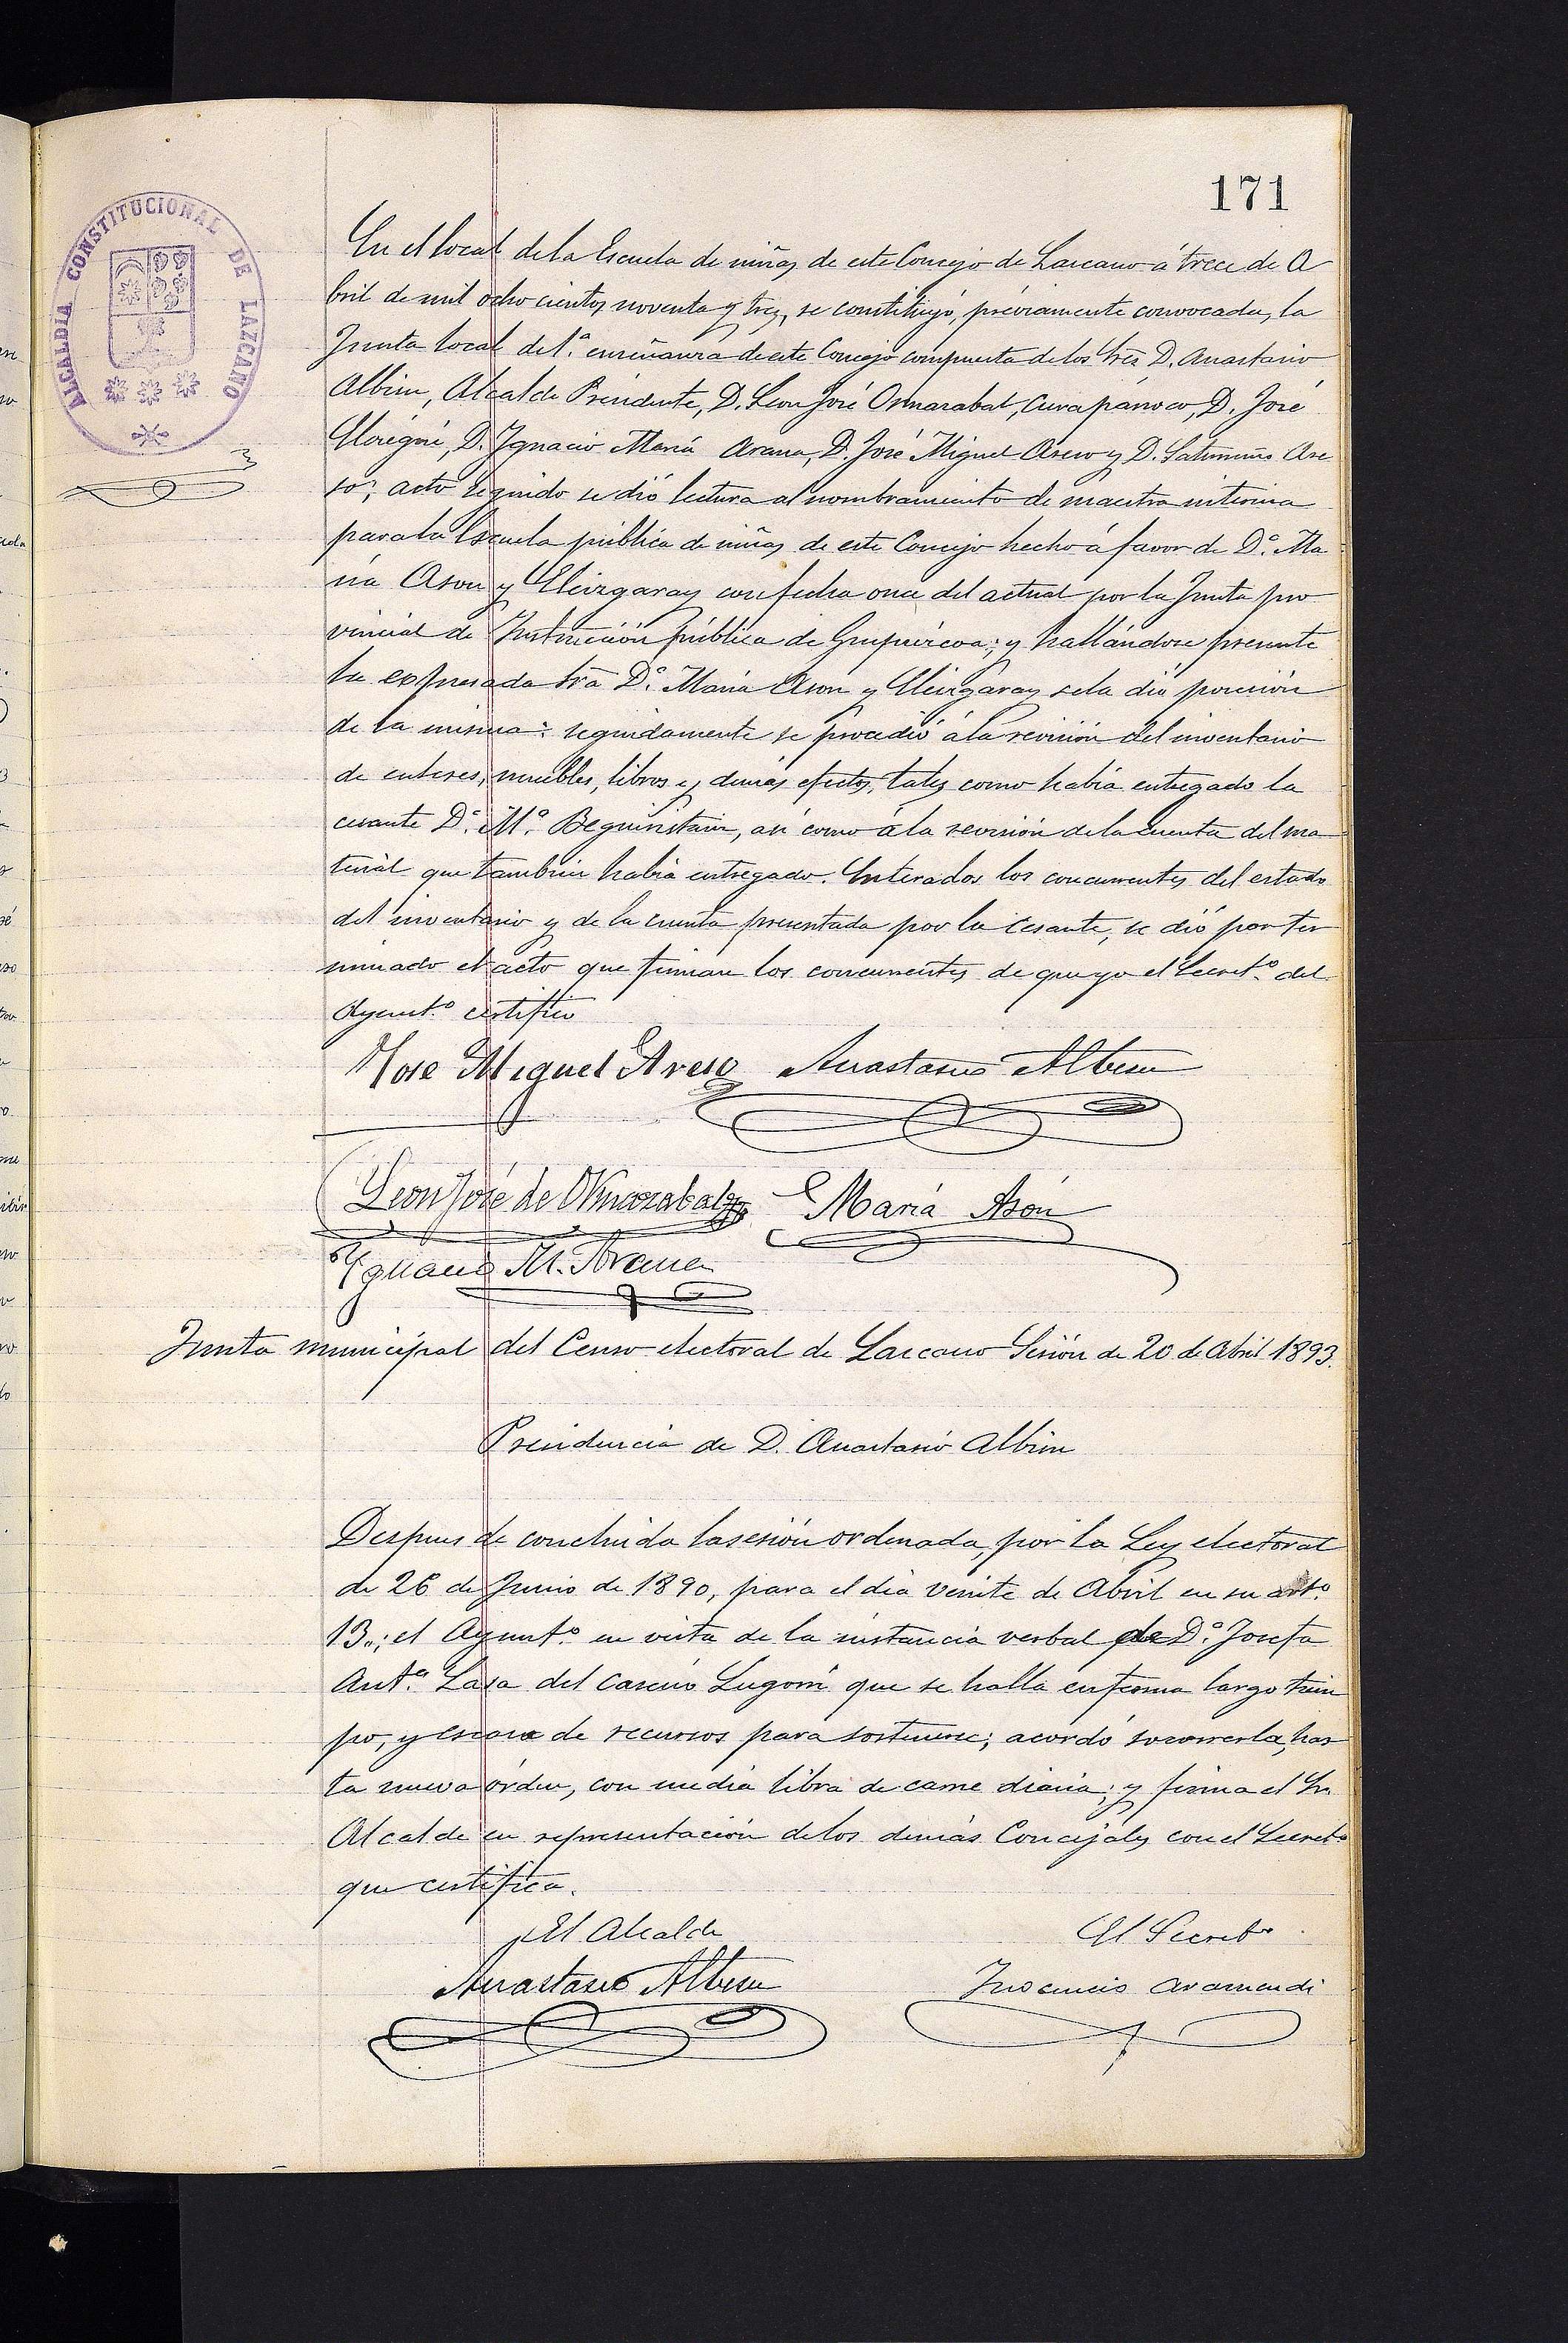 171
ALCALDIA CONSTITUCIONAL DE LAZCANO
En el local de la Escuela de niñas de este Concejo de Lazcano á trece de A
bril de mil ochocientos noventa y tres, se constituyó, préviamente convocada, la
Junta local de 1.ª enseñanza de este Concejo compuesta de los Sres D. Anastasio
Albisu, Alcalde Presidente, D. Leon José Ormazabal, Cura párroco, D. José
D. Ignacio María Arana, D. José Miguel Areso y D. Saturnino Are
so; acto seguido se dió lectura al nombramiento de maestra interina
para la Escuela pública de niñas de este Concejo hecho á favor de D.ª Ma
ría Ason y Eleizgaray con fecha once del actual por la Junta pro
vincial de Instrucción pública de Guipúzcoa; y hallándose presente
la expresada Sra D.ª María Ason y Eleizgaray se la dió posesión
de la misma: seguidamente se procedió á la revisión del inventario
de enseres, muebles, libros y demás efectos, tales como había entregado la
cesante D.ª M.ª Beguiristain, así como á la revisión de la cuenta del ma
terial que tambien había entregado. Enterados los concurrentes del estado
del inventario y de la cuenta presentada por la cesante, se dió por ter
minado el acto que firman los concurrentes de que yo el Secret.º del
Ayunt.º certifico
José Miguel Areso Anastasio Albisu
Leon José de Ormazabal María Asón
Ygnacio M. Arana
Junta municipal del Censo electoral de Lazcano Sesión de 20 de Abril 1893.
Presidencia de D. Anastasio Albisu
Despues de concluida la sesión ordenada, por la Ley electoral
de 26 de Junio de 1890, para el día veinte de Abril en su art.º
13.; el Ayunt.º en vista de la instancia verbal de D.ª Josefa
Ant.ª Lasa del caserío Lugorri que se halla enferma largo tiem
po, y escasa de recursos para sostenerse; acordó socorrerla, has
ta nueva órden, con media libra de carne diaria; y firma el Sr.
Alcalde en representación de los demás Concejales con el Secret.º
que certifica.
El Alcalde El Secret.º
Anastasio Albisu Inocencio Aramendi